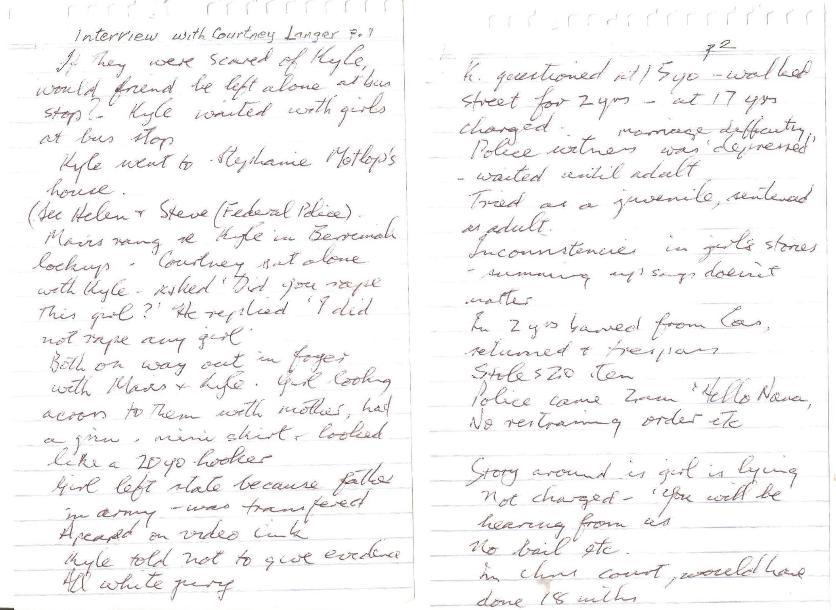 Interview with Courtney Langer P.1
If they were scared of Kyle,
would friend be left alone at bus
stop? - Kyle waited with girls
at bus stop
Kyle went to Stephanie Motlop's
house.
(See Helen + Steve (Federal Police).
Mavis rang re Kyle in Berrimah
lockup. Courtney sat alone
with Kyle - asked 'Did you rape
this girl?' He replied 'I did
not rape any girl'
Both on way out in foyer
with Mavis + Kyle. Girl looking
across to them with mother, had
a grin, mini skirt + looked
like a 20 yo hooker
Girl left state because father
in army - was transfered
Apeared on video link
Kyle told not to give evidence
All white jury
p2
K. questioned at 15 yo - walked
street for 2 yrs - at 17 yrs
charged. marriage difficulty,
Police witness was 'depressed'
- waited until adult
Tried as a juvenile, sentenced
as adult.
Inconsistencies in girl's stories
- summing up says doesn't
matter
In 2 yrs banned from Cas,
returned + trespass
Stole $20 item
Police came 2am 'Hello Nana,
No restraining order etc
Story around is girl is lying
Not charged - 'You will be
hearing from us
No bail etc.
In court, would have
done 18 mths